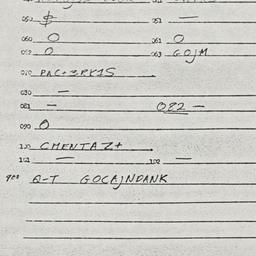 050 $ 051 —
060 O 061 O
062 O 063 GOJM
070 PAC+3RK1S
080 —
081 — 082 —
090 O
100 CMENTAZ+
101 — 102 —
900 Q-T GOCAJNDANK